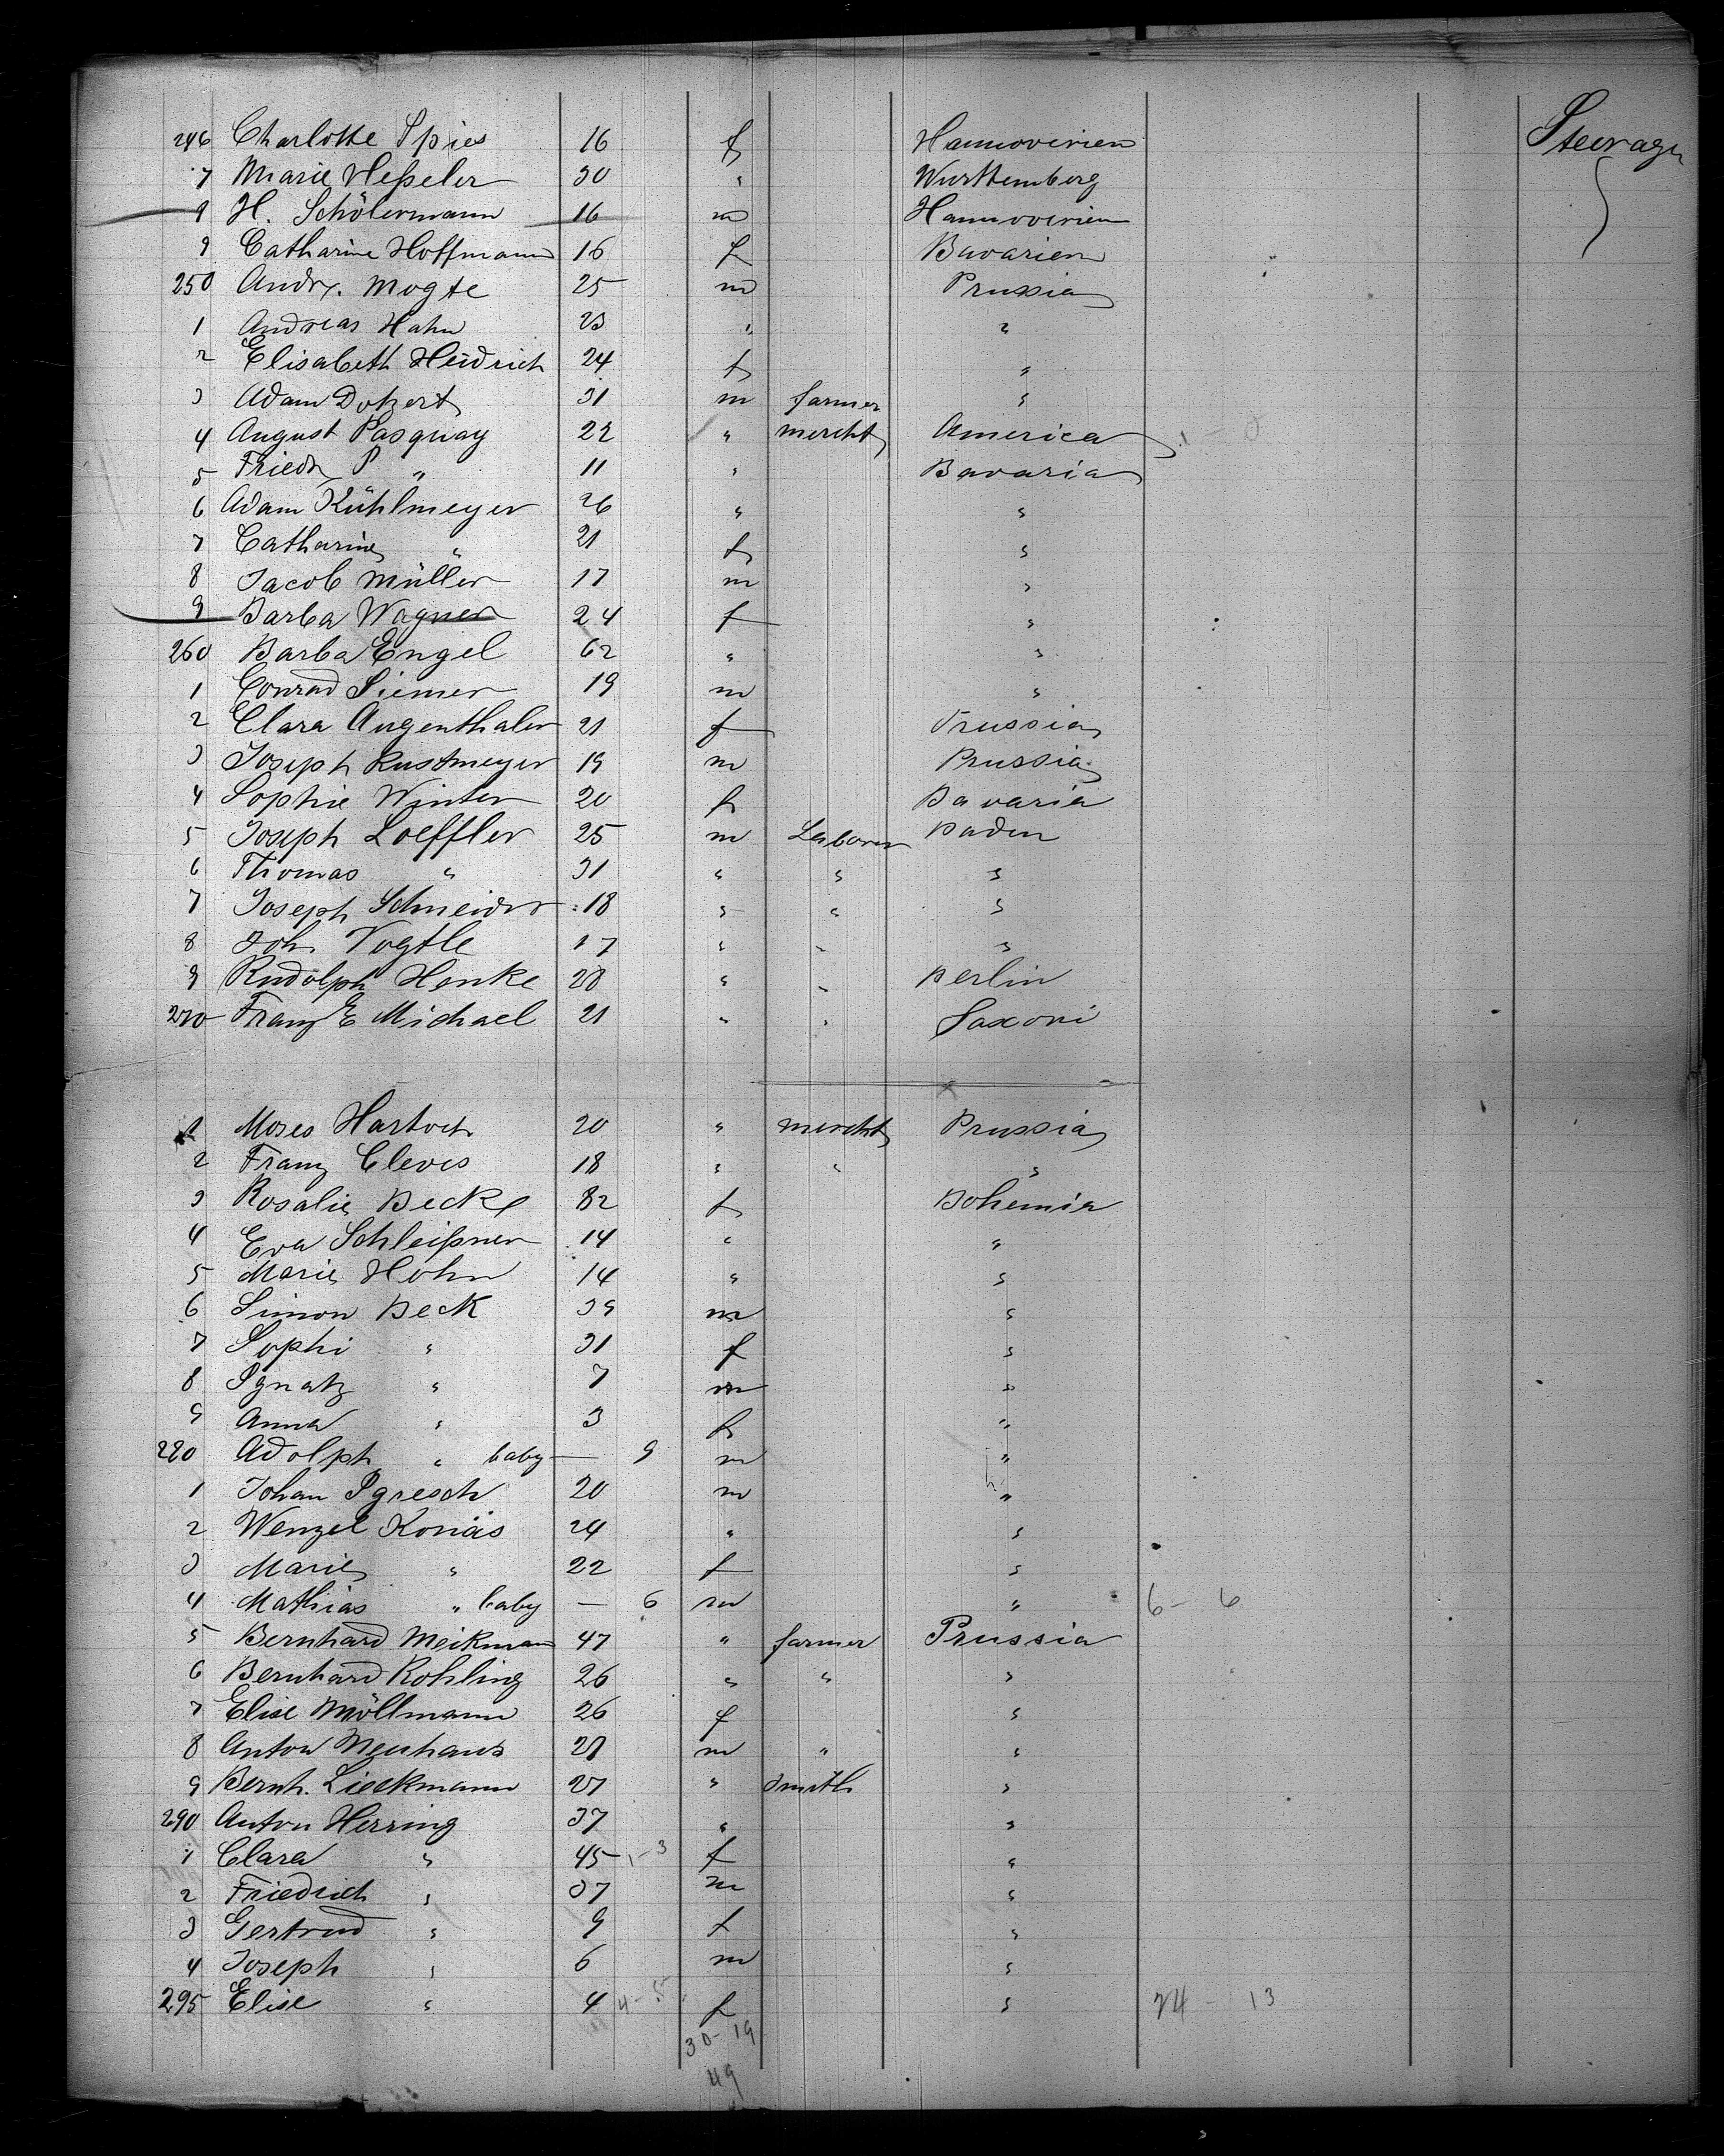 246 Charlotte Spies 16 f Hannoverien Steerage
7 Marie Heßeler 30 " Wurttemberg
8 H. Schölermann 16 m Hannoverien
9 Catharine Hoffmann 16 f Bavarien
250 Andr. Mogte 25 m Prussia
1 Andreas Hahn 23 " "
2 Elisabeth Heidrich 24 f "
3 Adam Dotzert 31 m farmer "
4 August Pasquay 22 " mercht America
5 Friedr P " 11 " Bavaria
6 Adam Kühlmeyer 26 " "
7 Catharine " 21 f "
8 Jacob Müller 17 m "
9 Barba Wagner 24 f "
260 Barba Engel 62 " "
1 Conrad Siemer 19 m "
2 Clara Augenthaler 21 f Prussia
3 Joseph Rustmeyer 19 m Prussia
4 Sophie Winter 20 f Bavaria
5 Joseph Loeffler 25 m Laborer Baden
6 Thomas " 31 " " "
7 Joseph Schneider 18 " " "
8 Joh. Vogtle 17 " " "
9 Rudolph Henke 28 " " Berlin
270 Franz E Michael 21 " " Saxoni
1 Moses Hartoch 20 " mercht Prussia
2 Franz Cleves 18 " " "
3 Rosalie Becke 82 f Bohemia
4 Eva Schleißner 14 " "
5 Marie Hohn 14 " "
6 Simon Beck 39 m "
7 Sophi " 31 f "
8 Ignatz " 7 m "
9 Anna " 3 f "
280 Adolph " baby — 9 m "
1 Johan Igresch 20 m "
2 Wenzel Konäs 24 " "
3 Marie " 22 f "
4 Mathias " baby — 6 m " 6 - 6
5 Bernhard Meikmann 47 " farmer Prussia
6 Bernhard Rohling 26 " " "
7 Elise Möllmann 26 f "
8 Anton Neuhaus 27 m " "
9 Bernh. Lieckmann 27 " Smith "
290 Anton Herring 37 " "
1 Clara " 45 1-3 f "
2 Friedrich " 37 m "
3 Gertrud " 9 f "
4 Joseph " 6 m "
295 Elise " 4 4-5 f " 24 - 13
30-19
49